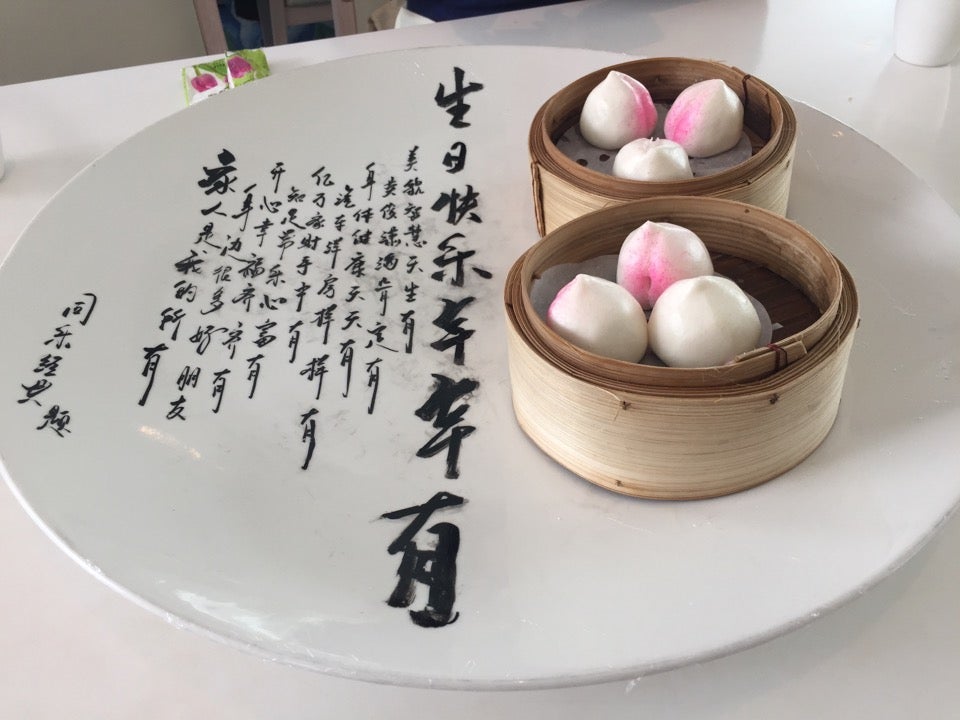 生日快乐年年有
美貌智慧天生有
英俊潇洒肯定有
身体健康天天有
汽车洋房样样有
亿万家财手中有
知足常乐心富有
开心幸福齐齐有
身边很多好朋友
家人是我的所有
同乐经典题